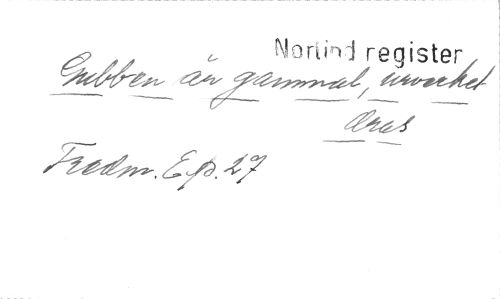 Norlind register
Gubben är gammal, urverket
dras
Fredm. Ep. 27